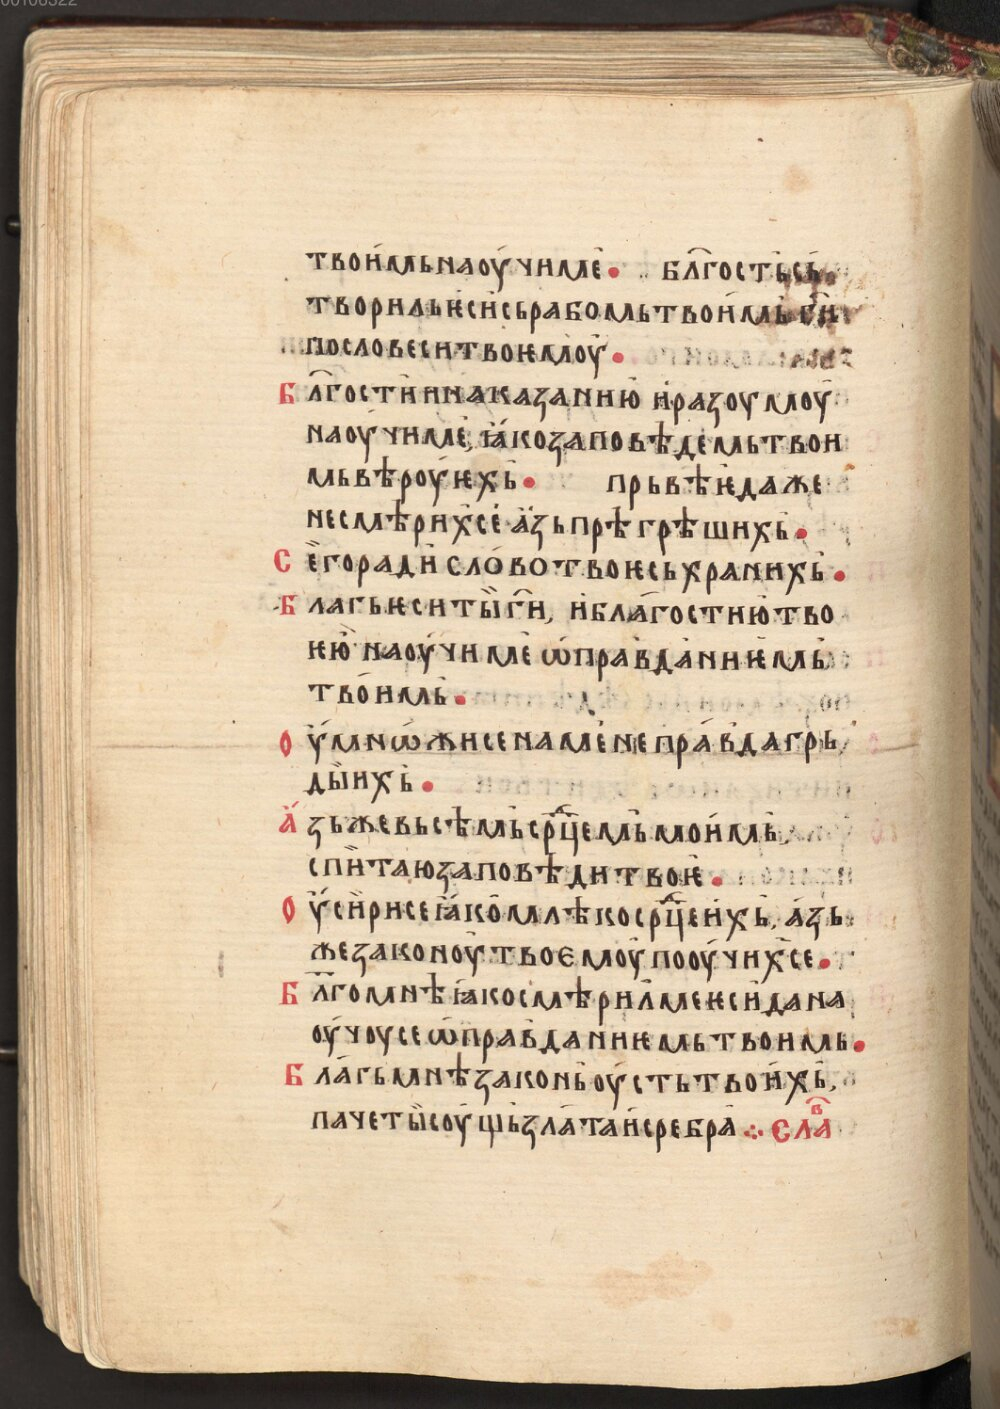 00106322
твои́мь наоу́чи мѐ. бл҃гость сь
твориль ѥсѝ сь рабомь твои́мь г҃и
по словеси твоѥмоу̀.
Бл҃гости и наказанїю̀ и҆ разоумоу̀
наоу́чи мѐ, ꙗ҆́ко заповѣ́демь твои
мь вѣ́роу́ѥхь̀. прьвѣѥ̀ даже
не смѣ́рихсѐ а҆́зь прѣгрѣ́шихь̀.
Сѐго радѝ сло́во твоѥ сьхранихь̀.
Благь ѥси ты̀ г҃и, и҆ благостию̀ тво
ѥю̀ наоу́чи мѐ ѡ҆правда́ниѥ́мь
твои́мь.
Оу҆́мнѡ́жисе на мѐне пра́вда грь
дыи́хь̀.
А҆́зь же вьсѣ́мь ср҃цемь мои́мь,
спи̑таю заповѣ́ди твоѥ̀.
Оу҆́си̑рисе ꙗ҆́ко млѣ́ко ср҃це и́хь̀, а҆́зь
же законоу̀ твоємоу̀ пооу́чихсе.
Бл҃го мнѣ̀ ꙗ҆ко смѣ́риль ме ѥсѝ да на
оу́чоусе ѡ҆правда́ниѥмь твоимь.
Бла́гь мнѣ̀ законь̀ оу҆́сть твои́хь̀,
паче ты̀соу́щь зла́та и҆ сребра̀ ⁘ Сла̑в